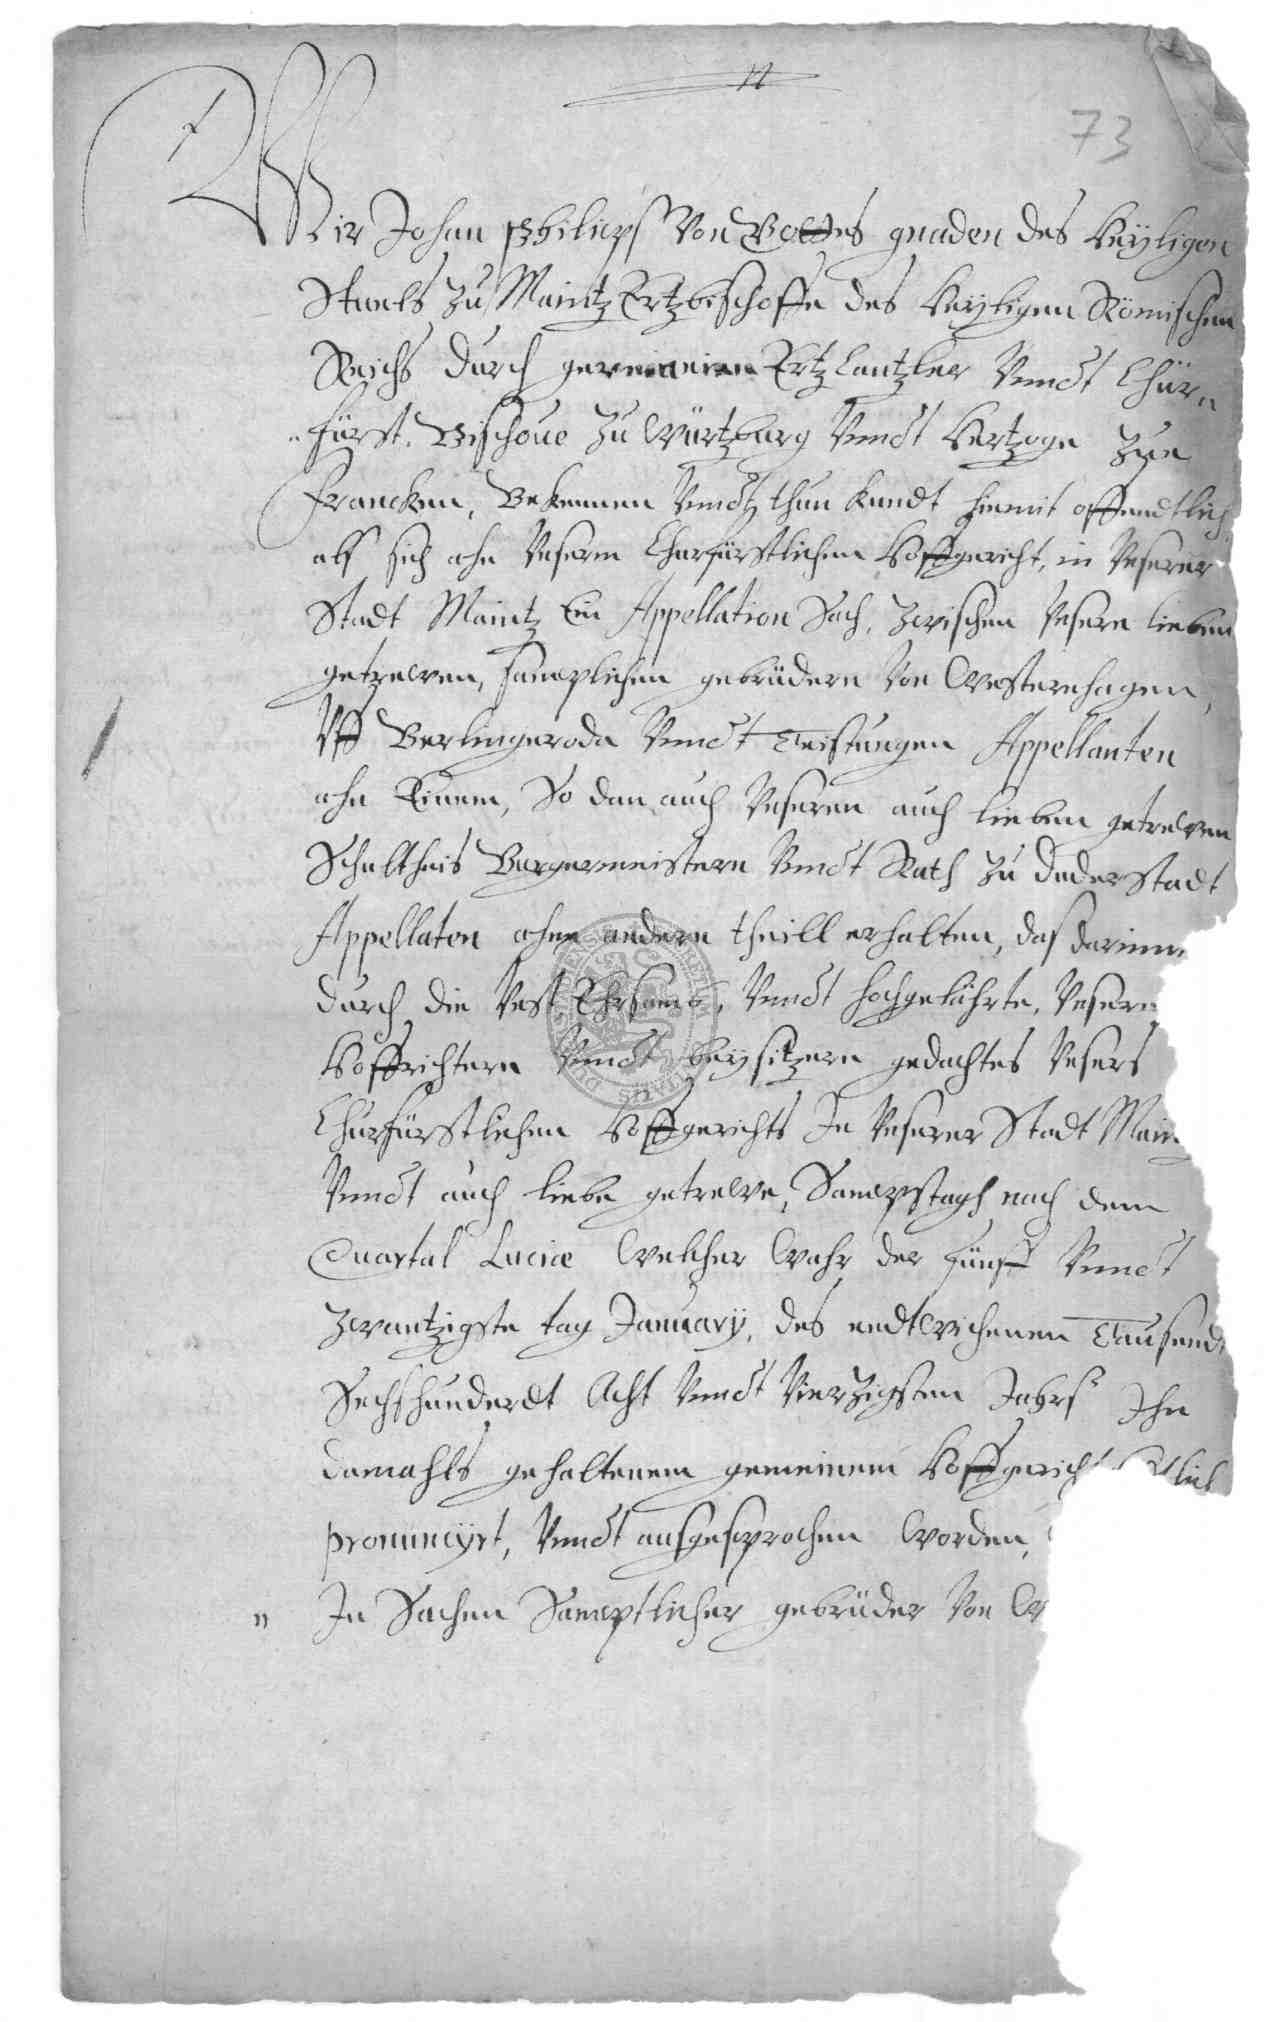 73
Wir Johan Philips Von Gottes gnaden des Heyligen
Stuels zu Maintz Ertzbischoffe des Heyligen Römischen
Reichs durch germanien Ertz Cantzler Vnndt Chür„
„fürst. Bischoue zu Würtzburg Vnndt Hertzoge zue
Francken, Bekennen Vnndt thun kundt hiemit offendtlich,
alß sich ahn Vnserm Churfürstlichen Hoffgericht, in Vnserer
Stadt Maintz Ein Appellation Sach, zwischen Vnsern lieben
getrewen, samptlichen gebrüdern Von Westernhagen,
Vff Berlingeroda Vnndt Teistungen Appellanten
ahn Einem, So dan auch Vnseren auch lieben getrewen
Schultheis Burgermeistern Vnndt Rath zu Duderstadt
Appellaten ahm andern theill erhalten, das darinn
durch die Vest Ehrsamb, Vnndt hochgelährte, Vnsern
Hoffrichtern Vnndt beysitzern gedachtes Vnsers
Churfürstlichen Hoffgerichts In Vnserer Stadt Main
Vnndt auch liebe getrewe, Sampstagh nach dem
Quartal Luciæ Welcher Wahr der fünff Vnndt
zwantzigste tag January, des endtwichenen Tausendt
Sechshunderdt Acht Vnndt Vierzigsten Jahrs Ihn
damahls gehaltenem gemeinem Hoffgericht
pronuncyrt, Vnndt ausgesprochen Worden,
„ In Sachen Samptlicher gebrüder Von W